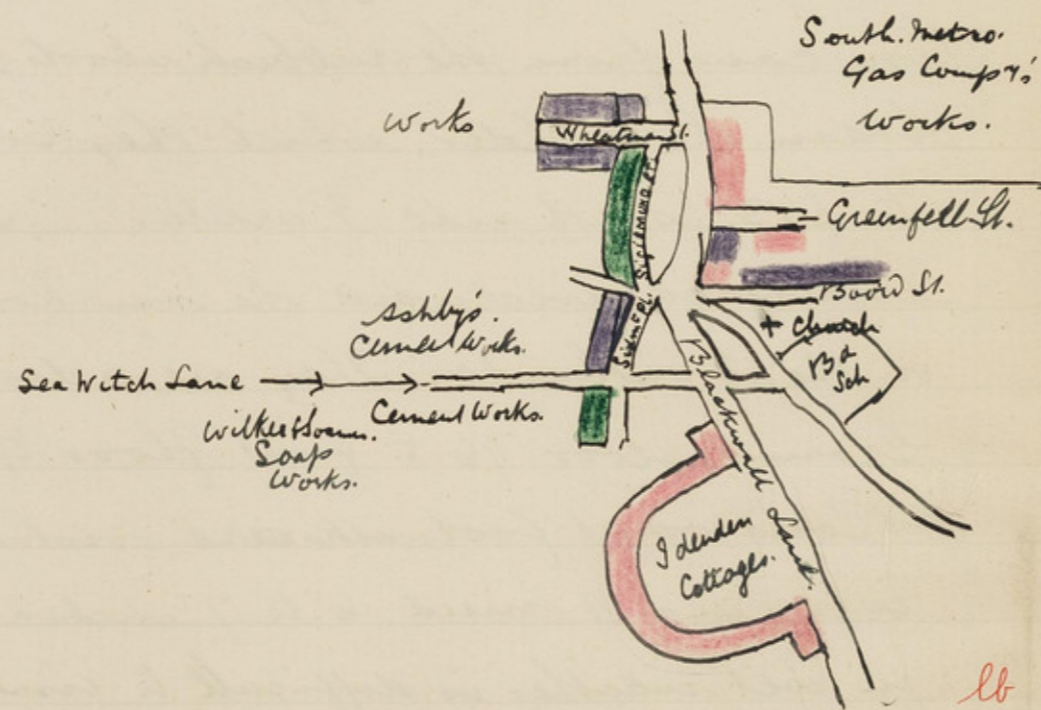 South. Metro.
Gas Compy's
Works.
Works
Wheatman St.
Greenfell St.
Boord St.
+ Church
Bd
Sch
Ashby's.
Cement Works.
Sea Witch Lane
Cement Works.
Soap
Works.
Blackwall Lane.
Idenden
Cottages.